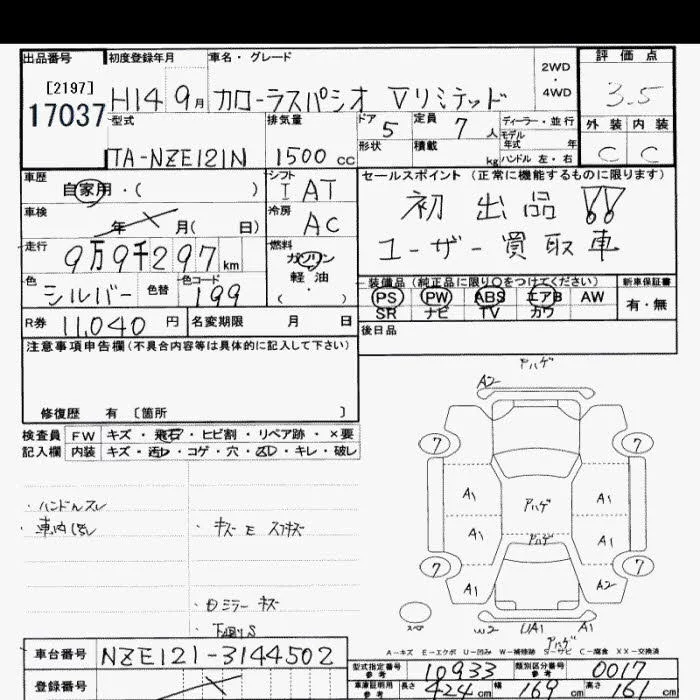 出品番号 初度登録年月 車名・グレード 2WD・4WD 評価点
[2197]
17037 H14 9月 カローラスパシオ Vリミテッド 3.5
型式 排気量 ドア 5 定員 7人 ディーラー・並行 外装 内装
モデル年式 年
TA-NZE121N 1500cc 形状 積載 kg ハンドル 左・右 C C
車歴 シフト セールスポイント (正常に機能するものに限ります)
自家用・( ) I AT 初出品!!
車検 年 月( 日) 冷房 AC ユーザー買取車
走行 9万9千297km 燃料
ガソリン
軽油
( )
色 シルバー 色替 色コード 199
装備品(純正品に限り〇をつけてください) 新車保証書
PS PW ABS エアB AW 有・無
SR ナビ TV カワ
R券 11,040円 名変期限 月 日 後日品
注意事項申告欄(不具合内容等は具体的に記入して下さい)
修復歴 有 [箇所 ]
検査員 FW キズ・飛石・ヒビ割・リペア跡・×要
記入欄 内装 キズ・汚レ・コゲ・穴・スレ・キレ・破レ
・ハンドルスレ
・キズE スリキズ
・ミラーキズ
アハゲ
A2
7 7
A1 アハゲ A1
A1 アハゲ A1
7 7
A1 A2
スペア W2 UA1 A1
アハゲ
A-キズ E-エクボ U-凹み W-補修跡 S-サビ C-腐食 XX-交換済
車台番号 NZE121-3144502
型式指定番号 参考 10933 類別区分番号 参考 0017
登録番号
車庫証明用 参考 長さ 424cm 幅 169cm 高さ 161cm